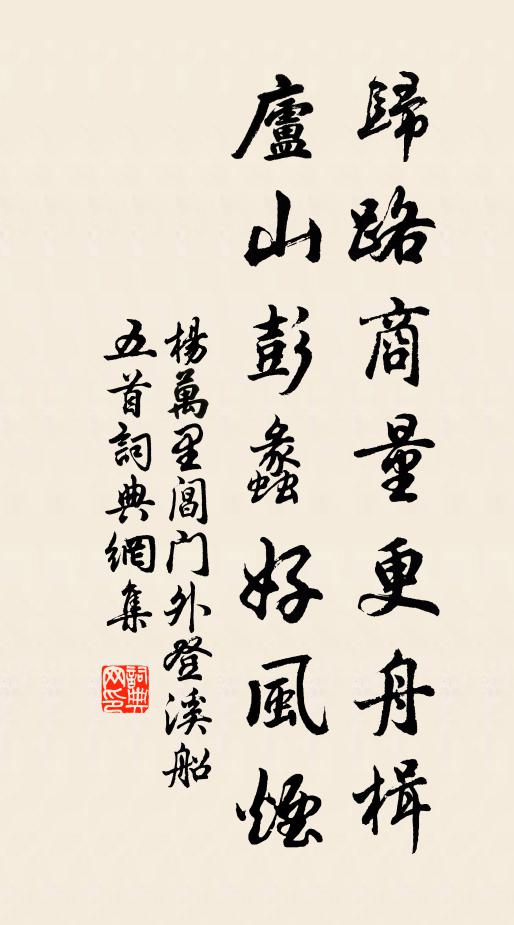 歸路商量更舟楫
廬山彭蠡好風煙
楊萬里閶門外登溪船
五首詞典網集
詞典
网印